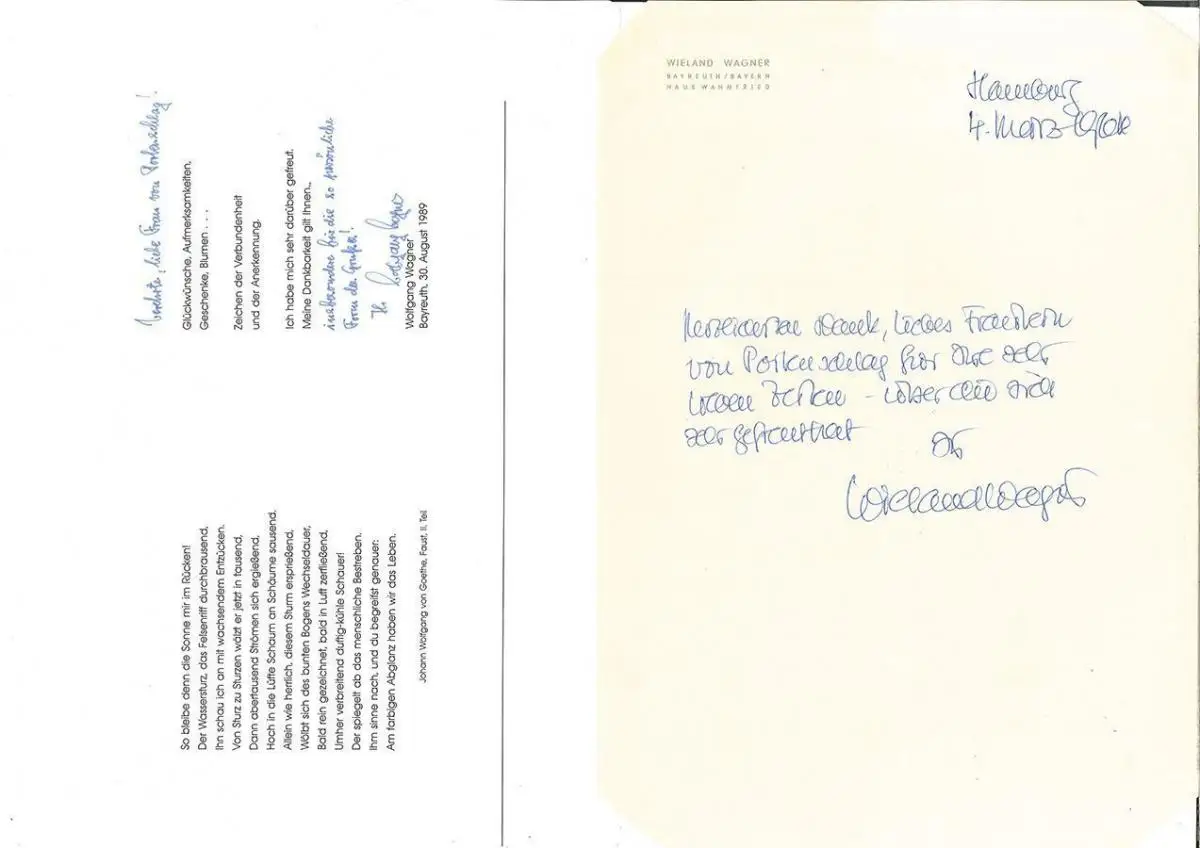 Verehrte, liebe Frau von Portenschlag!
Glückwünsche, Aufmerksamkeiten,
Geschenke, Blumen . . .
Zeichen der Verbundenheit
und der Anerkennung.
Ich habe mich sehr darüber gefreut.
Meine Dankbarkeit gilt Ihnen...
insbesondere für die so persönliche
Form der Grüße!
Ihr Wolfgang Wagner
Wolfgang Wagner
Bayreuth, 30. August 1989
So bleibe denn die Sonne mir im Rücken!
Der Wassersturz, das Felsenriff durchbrausend,
Ihn schau ich an mit wachsendem Entzücken.
Von Sturz zu Sturzen wälzt er jetzt in tausend,
Dann abertausend Strömen sich ergießend,
Hoch in die Lüfte Schaum an Schäume sausend.
Allein wie herrlich, diesem Sturm ersprießend,
Wölbt sich des bunten Bogens Wechseldauer,
Bald rein gezeichnet, bald in Luft zerfließend,
Umher verbreitend duftig-kühle Schauer!
Der spiegelt ab das menschliche Bestreben.
Ihm sinne nach, und du begreifst genauer:
Am farbigen Abglanz haben wir das Leben.
Johann Wolfgang von Goethe, Faust, II. Teil
WIELAND WAGNER
BAYREUTH/BAYERN
HAUS WAHNFRIED
Hamburg
4. März
Herzlichen Dank, liebes Fräulein
von Portenschlag für Ihre sehr
lieben Zeilen – über die ich
sehr gefreut hat
Ihr
Wieland Wagner